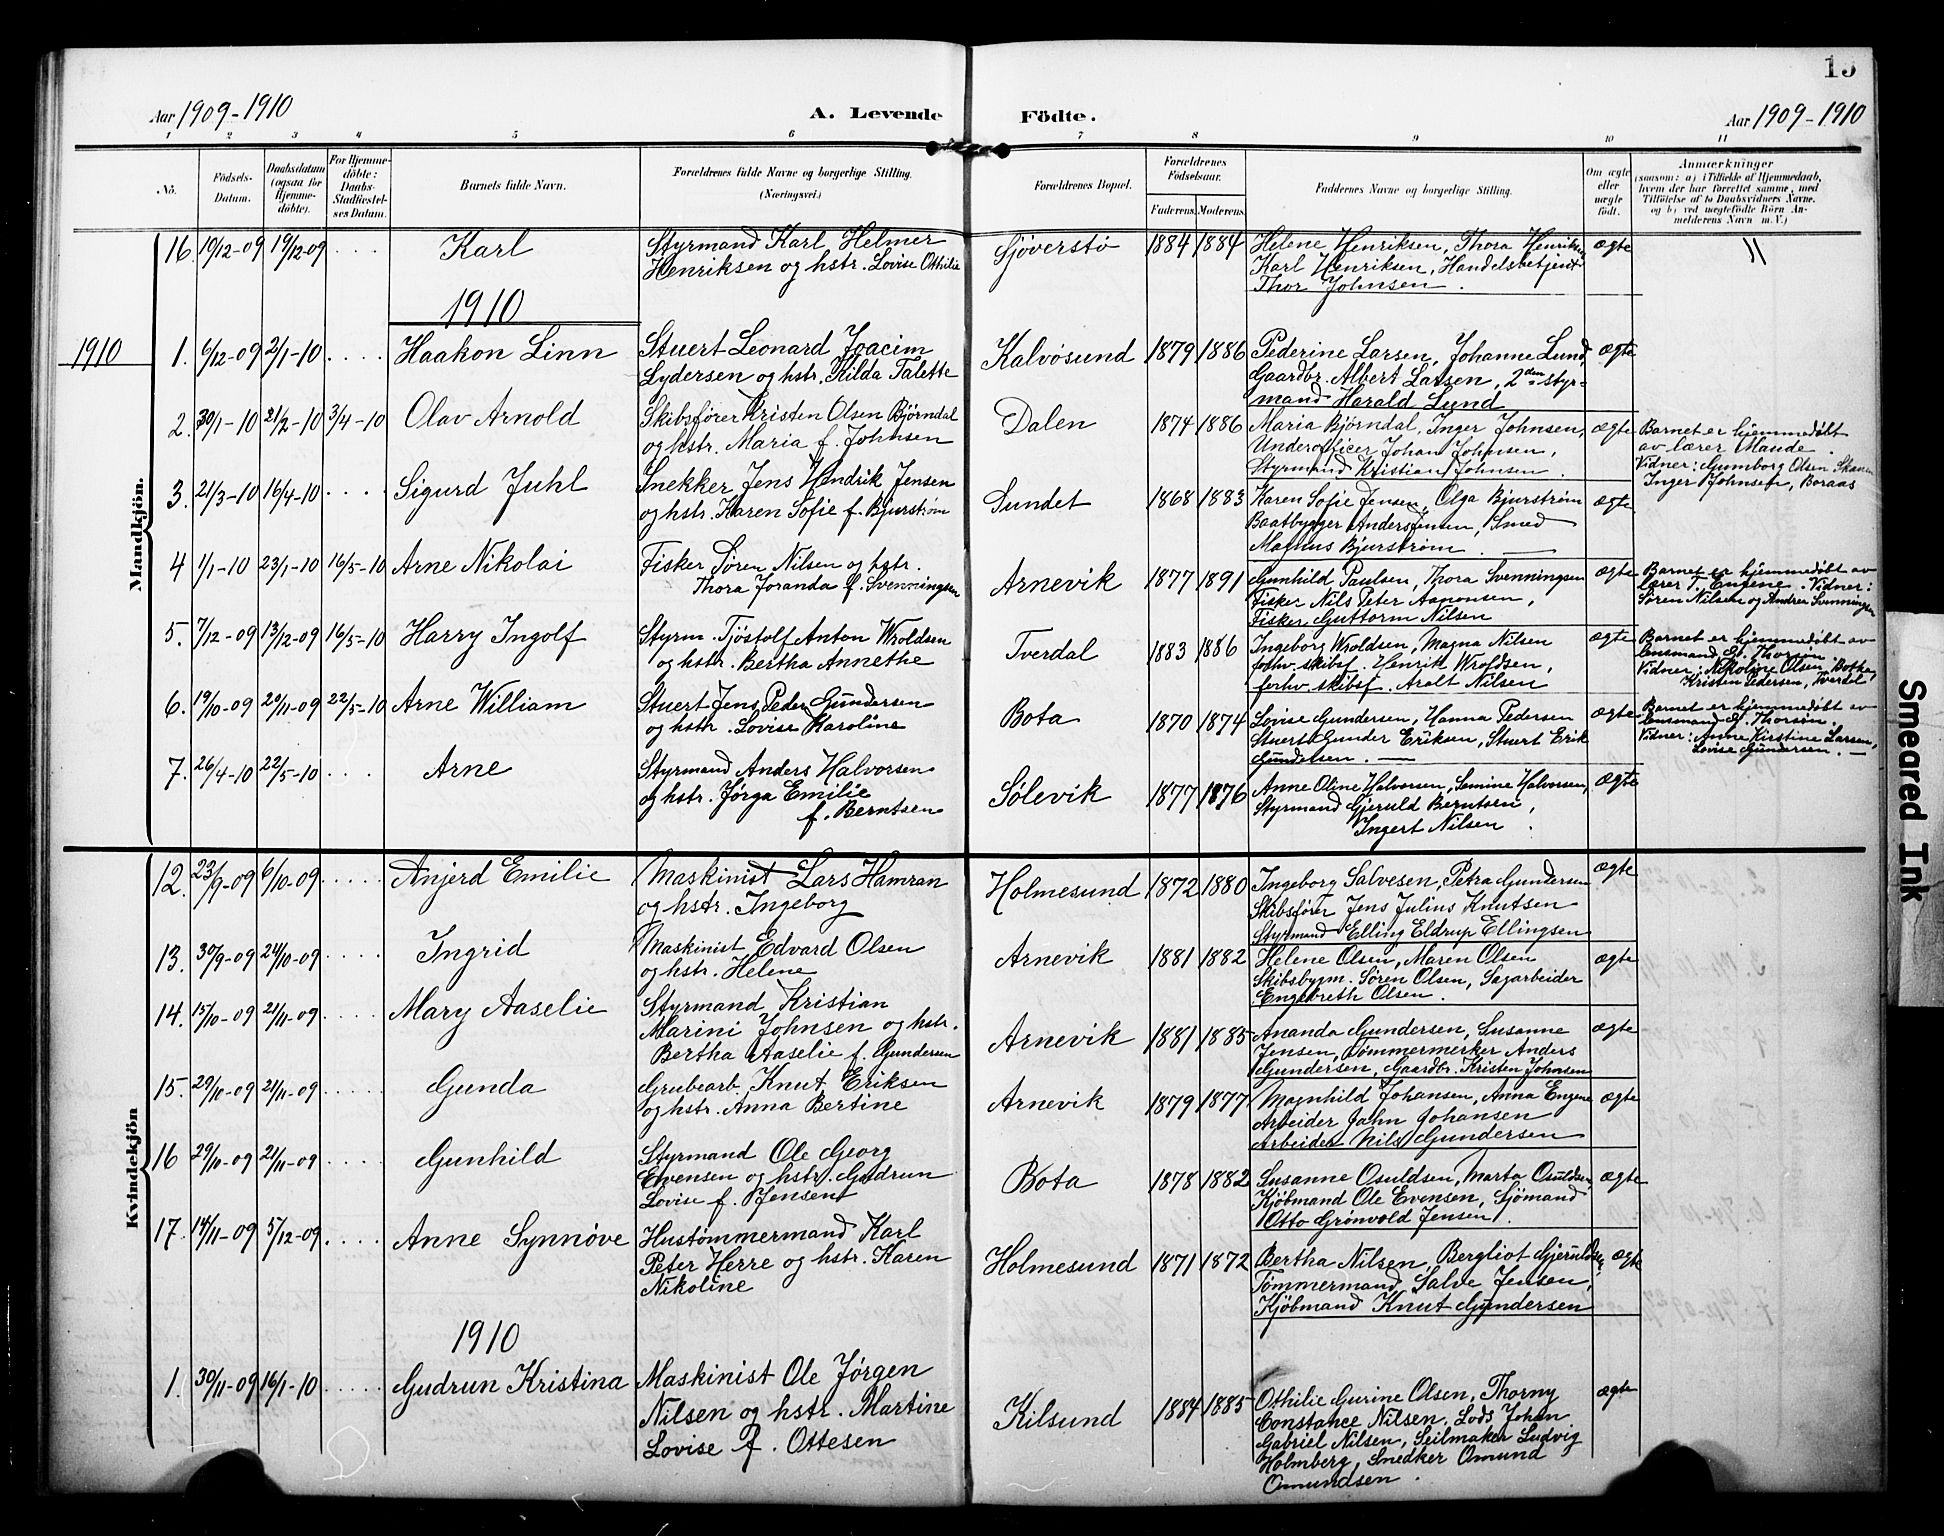 15
Aar 1909-1910
A. Levende Födte.
Aar 1909-1910
1 2 3 4 5 6 7 8 9 10 11
No.
Födsels-
Datum.
Daabsdatum
(ogsaa for
Hjemme-
döbte).
For Hjemme-
döbte:
Daabs-
Stadfæstel-
ses Datum.
Barnets fulde Navn.
Forældrenes fulde Navne og borgerlige Stilling.
(Næringsvei.)
Forældrenes Bopæl.
Forældrenes
Födselsaar.
Faderens. Moderens.
Faddernes Navne og borgerlige Stilling.
Om ægte
eller
uægte
født.
Anmærkninger
(saasom: a) i Tilfælde af Hjemmedaab,
hvem der har forrettet samme, med
Tilföielse af to Daabsvidners Navne,
og b) ved uægtefödte Börn An-
melderens Navn m. V.)
Mandkjön.
16. 10/12-09 19/12-09 .... Karl
Styrmand Karl Helmer
Henriksen og hstr. Lovise Othilie
Sjöverstö 1884 1884
Helene Henriksen, Thora Henriksen
Karl Henriksen, Handelsbetjent
Thor Johnsen.
ægte
1910
1910
1. 6/12-09 2/1-10 .... Haakon Linn
Stuert Leonard Joacim
Lydersen og hstr. Kilda Talette
Kalvösund 1879 1886
Pederine Larsen, Johanne Lund,
Gaardbr. Albert Larsen, 2den styr-
mand Harald Lund
ægte
2. 30/1-10 21/2-10 3/4-10 Olav Arnold
Skibsfører Kristen Olsen Björndal
og hstr. Maria f. Johnsen
Dalen 1874 1886
Maria Bjørndal, Inger Johnsen,
Underofficer Johan Johnsen,
Styrmand Kristian Johnsen.
ægte
Barnet er hjemmedøbt
av lærer Maude.
Vidner: Gumborg Olsen Skaren
Inger Johnsen, Boraas
3. 21/3-10 16/4-10 .... Sigurd Juhl
Snekker Jens Hendrik Jensen
og hstr. Karen Sofie f. Bjurstrøm
Sundet 1868 1883
Karen Sofie Jensen, Olga Bjurstrøm
Baatbygger Anders Jensen, Smed
Magnus Bjurstrøm.
ægte
4 1/1-10 23/1-10 16/5-10 Arne Nikolai
Fisker Søren Nilsen og hstr.
Thora Joranda f. Svenningsen
Arnevik 1877 1891
Gunhild Paulsen, Thora Svenningsen
Fisker Nils Peter Aanonsen,
Fisker Guttorm Nilsen
ægte
Barnet er hjemmedøbt av
lærer T. Engene. Vidner:
Søren Nilsen og Andrea Svenningsen
5. 7/12-09 13/12-09 16/5-10 Harry Ingolf
Styrm. Tjöstolf Anton Wroldsen
og hstr. Bertha Annethe
Tverdal 1883 1886
Ingeborg Wroldsen, Magna Nilsen
forhv. skibsf. Henrik Wroldsen,
forhv. skibsf. Aralt Nilsen
ægte
Barnet er hjemmedøbt av
lensmand G. Thorsøn.
Vidner: Nikoline Olsen, Bota,
Kristen Pedersen, Tverdal
6. 19/10-09 20/11-09 22/5-10 Arne William
Stuert Jens Peder Gundersen
og hstr. Lovise Karoline
Bota 1870 1874
Lovise Gundersen, Hanna Pedersen
Stuert Gunder Eriksen, Stuert Erik
Gundersen.
ægte
Barnet er hjemmedøbt av
lensmand G. Thorsøn.
Vidner: Anne Kirstine Larsen,
Lovise Gundersen.
7. 26/4-10 22/5-10 .... Arne
Styrmand Anders Halvorsen
og hstr. Jørga Emilie
f. Berntsen
Sölevik 1877 1876
Anne Oline Halvorsen, Semine Halvorsen,
Styrmand Gjeruld Berntsen,
Ingert Nilsen.
ægte
Kvindekjön
12. 23/9-09 6/10-09 ..... Anjerd Emilie
Maskinist Lars Hamran
og hstr. Ingeborg
Holmesund 1872 1880
Ingeborg Salvesen, Petra Gundersen
Skibsfører Jens Julius Knutsen
Styrmand Elling Eldrup Ellingsen
ægte
13. 30/9-09 24/10-09 .... Ingrid
Maskinist Edvard Olsen
og hstr. Helene
Arnevik 1881 1882
Helene Olsen, Maren Olsen
Skibsbygm. Søren Olsen, Sagarbeider
Engebreth Olsen.
ægte
14. 15/10-09 21/11-09 .... Mary Aaselie
Styrmand Kristian
Marini Johnsen og hstr.
Bertha Aaselie f. Gundersen
Arnevik 1881 1885
Ananda Gundersen, Susanne
Jensen, Tømmermerker Anders
Gundersen, Gaardbr. Kristen Johnsen
ægte
15. 29/10-09 21/11-09 .... Gunda
Grubearb. Knut Eriksen
og hstr. Anna Bertine
Arnevik 1879 1877
Magnhild Johansen, Anna Engene
Arbeider Jahn Johansen
Arbeider Nils Gundersen
ægte
16 29/10-09 21/11-09 .... Gunhild
Styrmand Ole Georg
Evensen og hstr. Gudrun
Lovise f. Jensen
Bota 1878 1882
Susanne Osuldsen, Marta Osuldsen,
Kjøbmand Ole Evensen, Sjömand
Otto Grönvold Jensen.
ægte
17. 14/11-09 5/12-09 .... Anne Synnøve
Hustømmermand Karl
Peter Herre og hstr. Karen
Nikoline
Holmesund 1871 1872
Bertha Nilsen, Bergliot Gjeruldsen,
Tømmermand Salve Jensen,
Kjöbmand Knut Gundersen
ægte
1910
1. 30/11-09 16/1-10 ..... Gudrun Kristina
Maskinist Ole Jørgen
Nilsen og hstr. Martine
Lovise f. Ottesen
Kilsund 1884 1885
Othilie Gurine Olsen, Thorny
Constance Nilsen, Lods Johan
Gabriel Nilsen, Seilmaker Ludvig
Holmberg, Snedker Omund
Omundsen.
ægte
Smeared Ink